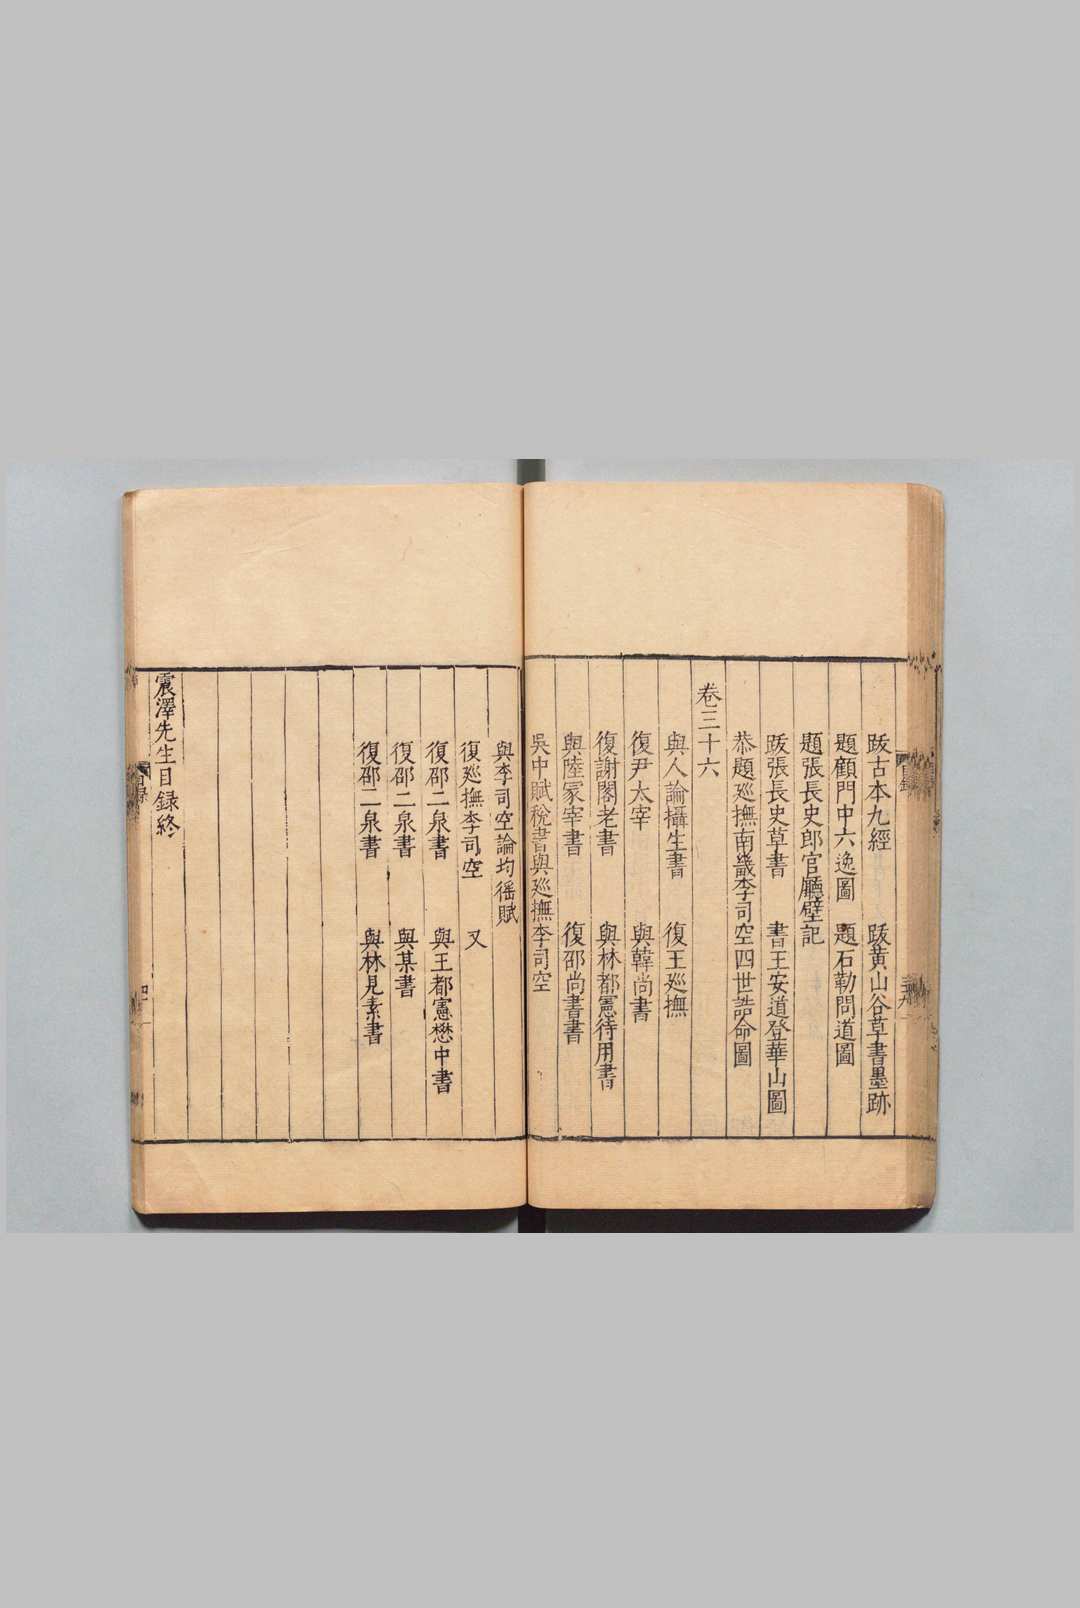 跋古本九經　跋黃山谷草書墨跡
題顧門中六逸圖　題石勒問道圖
題張長史郎官廳壁記
跋張長史草書　書王安道登華山圖
恭題廵撫南畿李司空四世誥命圖
卷三十六
與人論攝生書　復王廵撫
復尹太宰　與韓尚書
復謝閣老書　與林都憲待用書
與陸冢宰書　復邵尚書書
吳中賦稅書與廵撫李司空
與李司空論均徭賦
復廵撫李司空　又
復邵二泉書　與王都憲懋中書
復邵二泉書　與某書
復邵二泉書　與林見素書
震澤先生目録終
目録